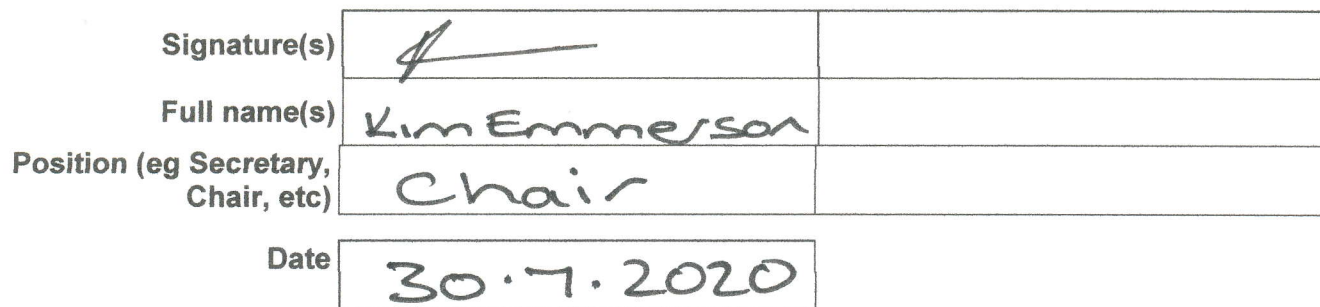 Signature(s)
Full name(s) Kim Emmerson
Position (eg Secretary,
Chair, etc) Chair
Date 30.7.2020